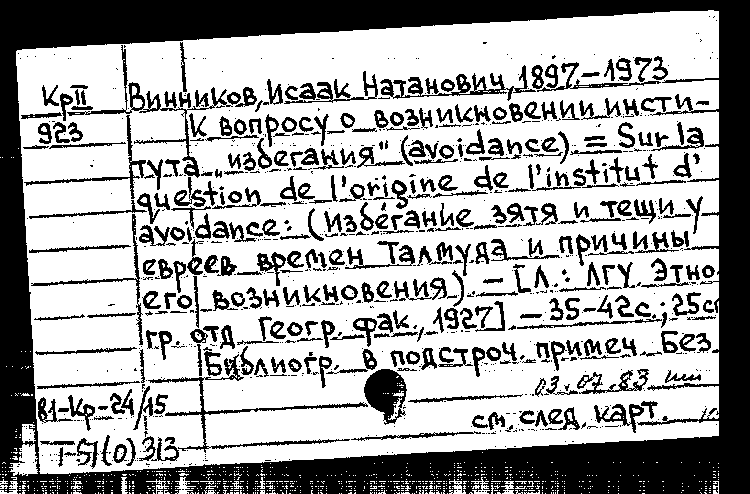 КрII Винников, Исаак Натанович, 1897–1973
923 К вопросу о возникновении инсти-
тута „избегания" (avoidance) = Sur la
question de l'origine de l'institut d'
avoidance: (Избегание зятя и тещи у
евреев времен Талмуда и причины
его возникновения). – [Л.: ЛГУ. Этно-
гр. отд. Геогр. фак., 1927]. – 35-42с.; 25см
Библиогр. в подстроч. примеч. Без
03.07.83
81-Кр-24/15
см. след. карт.
T-51(0)313